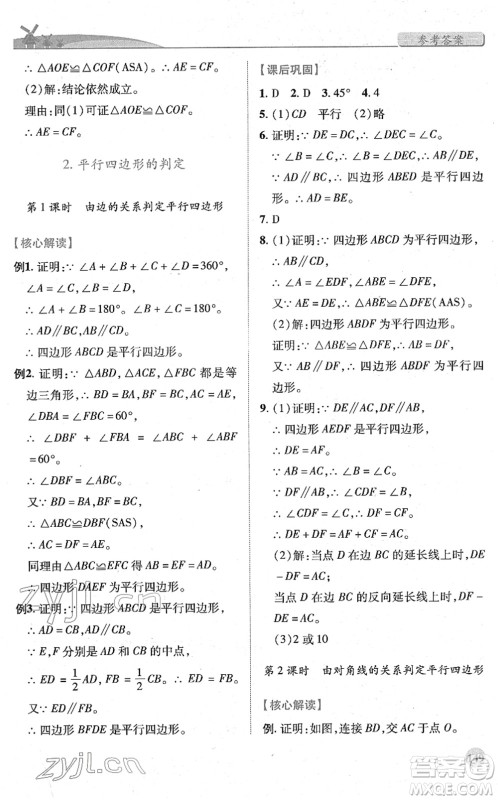 参考答案
∴ △AOE≌△COF(ASA). ∴ AE=CF。
(2)解:结论依然成立。
理由:同(1)可证△AOE≌△COF,
∴ AE=CF。
2. 平行四边形的判定
第1课时 由边的关系判定平行四边形
【核心解读】
例1. 证明:∵ ∠A+∠B+∠C+∠D=360°,
∠A=∠C,∠B=∠D,
∴ ∠A+∠B=180°。∠B+∠C=180°。
∴ AD∥BC,AB∥CD。
∴ 四边形ABCD是平行四边形。
例2. 证明:∵ △ABD,△ACE,△FBC都是等
边三角形,∴ BC=FC=BF,AC=AE,
∠DBA=∠FBC=60°。
∴ ∠DBF+∠FBA=∠ABC+∠FBA
=60°。
∴ ∠DBF=∠ABC。
又∵ BD=BA,BF=BC,
∴ △ABC≌△DBF(SAS)。
∴ AC=DF=AE。
同理可证△ABC≌△EFC 得出 AB=EF=AD。
∴ 四边形DAEF为平行四边形。
例3. 证明:∵ 四边形ABCD是平行四边形,
∴ AD∥BC,AD=BC。
∵ E,F分别是AD,BC的中点,
∴ ED=1/2 AD,FB=1/2 CB。∴ ED=FB。
又∵ ED∥FB,
∴ 四边形BFDE是平行四边形。
【课后巩固】
1. D 2. D 3. 45° 4. 4
5. (1)CD 平行 (2)略
6. 证明:∵ DE=DC,AB=DC,∴ DE=AB。
∵ ∠B=∠C,∠DEC=∠C,
∴ ∠B=∠DEC。∴ AB∥DE。
∴ 四边形ABED是平行四边形。
7. D
8. (1)证明:∵ 四边形ABCD为平行四边形,
∴ AB∥CD。∴ ∠BAE=∠DFE。
又∵ AE=DE,∠AEB=∠DFE,
∴ △ABE≌△DFE(AAS)。
(2)证明:∵ △ABE≌△DFE,∴ AB=DF。
又∵ AB∥DF,
∴ 四边形ABDF为平行四边形。
9. (1)证明:∵ DE∥AC,DF∥AB,
∴ 四边形AEDF是平行四边形。
∴ DE=AF。
又∵ AB=AC,∴ ∠B=∠C。
∵ DF∥AB,∴ ∠FDC=∠B。
∴ ∠FDC=∠C。∴ DF=CF。
∴ DE+DF=AF+CF=AC。
(2)解:当点D在边BC的延长线上时,
DE-DF=AC;
当点D在边BC的反向延长线上时,
(3)2或10
第2课时 由对角线的关系判定平行四边形
【核心解读】
例. 证明:如图,连接BD,交AC于点O。
zyjl.cn
zyjl.cn